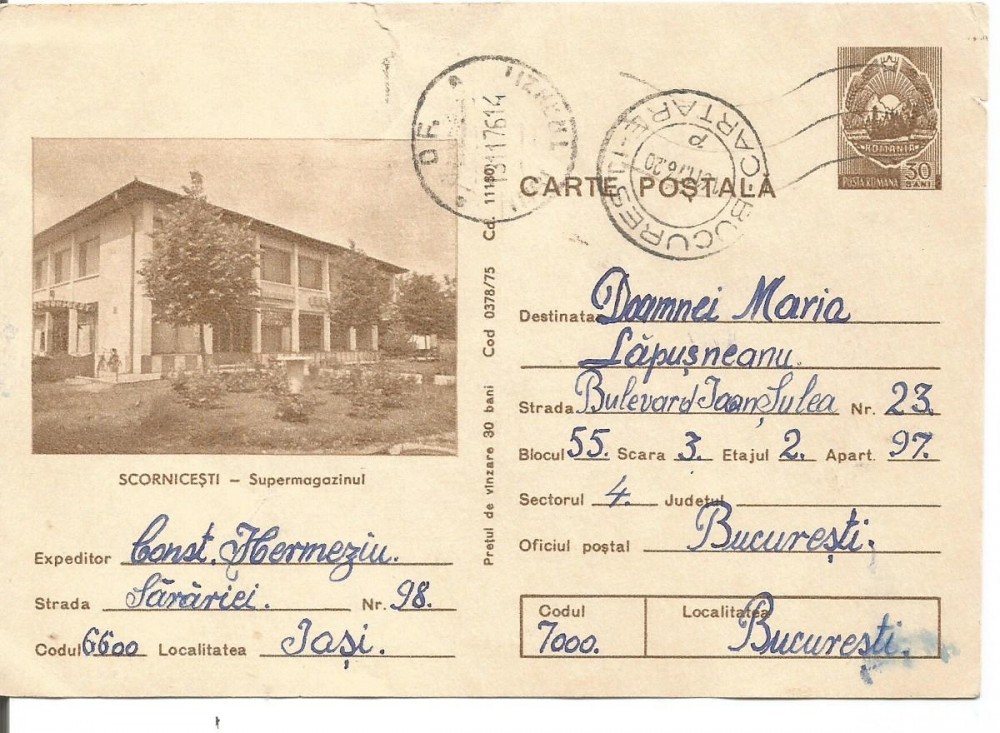 ROMANIA
30
BANI
POSTA ROMANA
CARTE POȘTALĂ
O.F.
BUCUREȘTI
CARTARE
P
SCORNICEȘTI – Supermagazinul
Expeditor Const. Hermeziu.
Strada Sărăriei. Nr. 98.
Codul 6600 Localitatea Iași.
Prețul de vînzare 30 bani Cod 0378/75 Cd. 11180
Destinatar Doamnei Maria
Lăpușneanu.
Strada Bulevard Ioan Șulea Nr. 23.
Blocul 55. Scara 3. Etajul 2. Apart. 97.
Sectorul 4. Județul
Oficiul poștal București.
Codul Localitatea
7000. București.